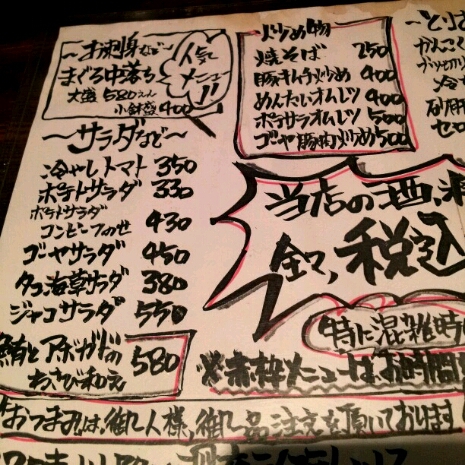 ～お刺身など～
まぐろ中落ち
大盛580えん
小鉢盛400
人気
メニュー
!!
～サラダなど～
冷やしトマト 350
ポテトサラダ 330
ポテトサラダ
コンビーフのせ 430
ゴーヤサラダ 450
タコ海草サラダ 380
ジャコサラダ 550
鮪とアボガドの
わさび和え 580
炒め物
焼そば 750
豚キムチ炒め 400
めんたいオムレツ 400
ポテサラオムレツ 500
ゴーヤ豚肉炒め 500
～とりあ
冷
セロ
当店の酒、料
全て、税込
特に混雑時
※赤枠メニューはお時間
おつまみは、御一人様、御一品注文を頂いております